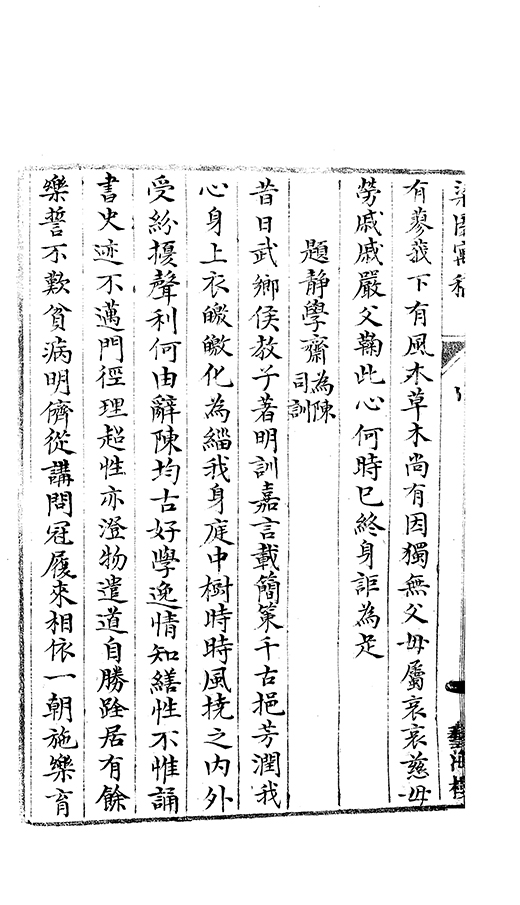 有蓼莪下有風木草木尚有因獨無父母屬哀哀慈母
勞戚戚嚴父鞠此心何時已終身詎為足
題靜學齋為陳司訓
昔日武鄉侯教子著明訓嘉言載簡策千古挹芳潤我
心身上衣皦皦化為緇我身庭中樹時時風撓之內外
受紛擾聲利何由辭陳均古好學逸情知繕性不惟誦
書史迹不邁門徑理超性亦澄物遣道自勝跧居有餘
樂誓不歎貧病明儕從講問冠屨來相依一朝施樂育
藝海樓